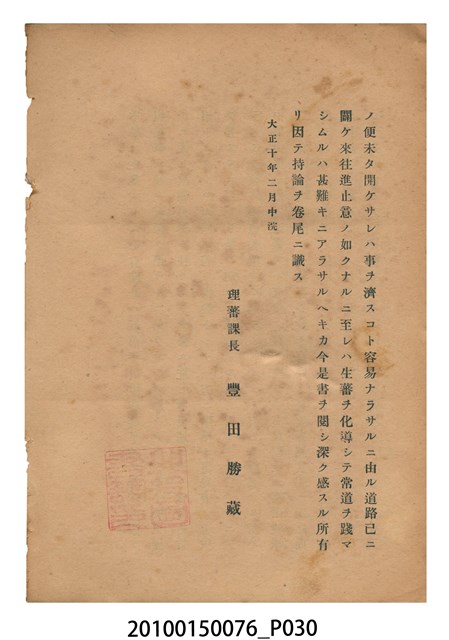 ノ便未タ開ケサレハ事ヲ濟スコト容易ナラサルニ由ル道路已ニ
闢ケ來往進止意ノ如クナルニ至レハ生蕃ヲ化導シテ常道ヲ踐マ
シムルハ甚難キニアラサルヘキカ今是書ヲ閲シ深ク感スル所有
リ因テ持論ヲ卷尾ニ識ス
大正十年二月中浣
理蕃課長 豐田勝藏
20100150076_P030